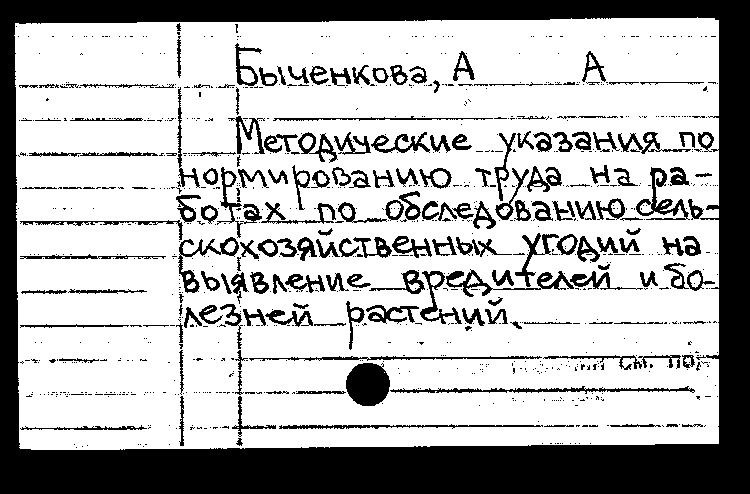 Быченкова, А А
Методические указания по
нормированию труда на ра-
ботах по обследованию сель-
скохозяйственных угодий на
выявление вредителей и бо-
лезней растений.
см. по